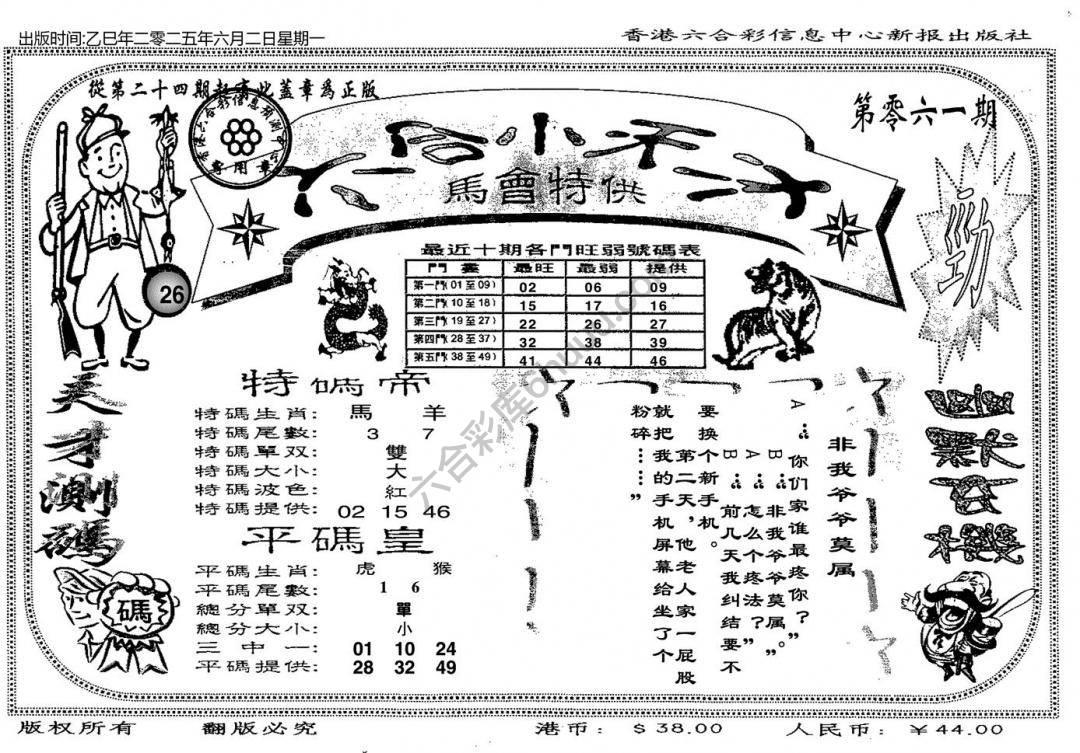 出版时间:乙巳年二零二五年六月二日星期一
香港六合彩信息中心新报出版社
從第二十四期起有此蓋章爲正版
第零六一期
專用章
馬會特供
26
勁
最近十期各門旺弱號碼表
門 最旺 最弱 提供
第一門(01至09) 02 06 09
第二門(10至18) 15 17 16
第三門(19至27) 22 26 27
第四門(28至37) 32 38 39
第五門(38至49) 41 44 46
天才測碼
特碼帝
特碼生肖: 馬 羊
特碼尾數: 3 7
特碼單双: 雙
特碼大小: 大
特碼波色: 紅
特碼提供: 02 15 46
平碼皇
平碼生肖: 虎 猴
平碼尾數: 1 6
總分單双: 單
總分大小: 小
三中一: 01 10 24
平碼提供: 28 32 49
碼
非我爷爷莫属
A:“你们家谁最疼你?”
B:“非我爷爷莫属。”
A:“怎么个疼法?”
B:“前几天我纠结要不
要换个新手机。
就把第二天,他老人家一屁股
把我的手机屏幕给坐了个
粉碎……”
六合彩库6huuu.com
版权所有 翻版必究 港币: $38.00 人民币: ¥44.00